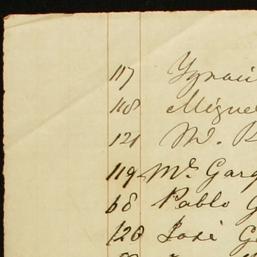 117 Ygnaci
118 Miguel
121 M.
119 Mc. Garg
68 Pablo G
123 José G